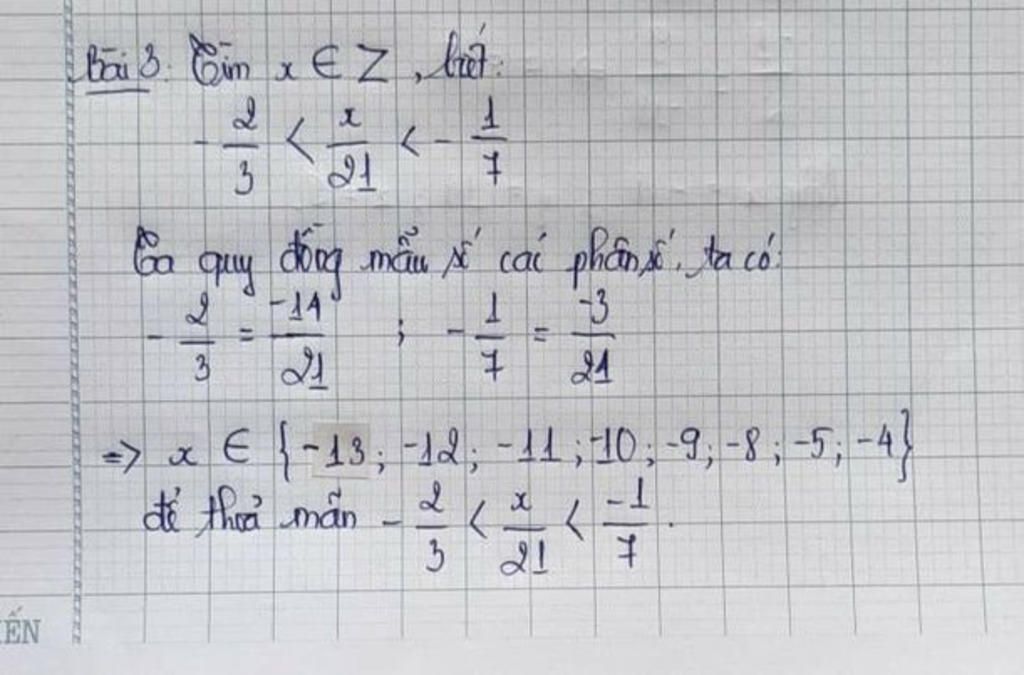 Bài 3. Tìm x ∈ Z, biết:
- 2/3 < x/21 < - 1/7
Ta quy đồng mẫu số các phân số, ta có:
- 2/3 = -14/21 ; - 1/7 = -3/21
=> x ∈ {-13; -12; -11; -10; -9; -8; -5; -4}
để thoả mãn - 2/3 < x/21 < -1/7.
ẾN